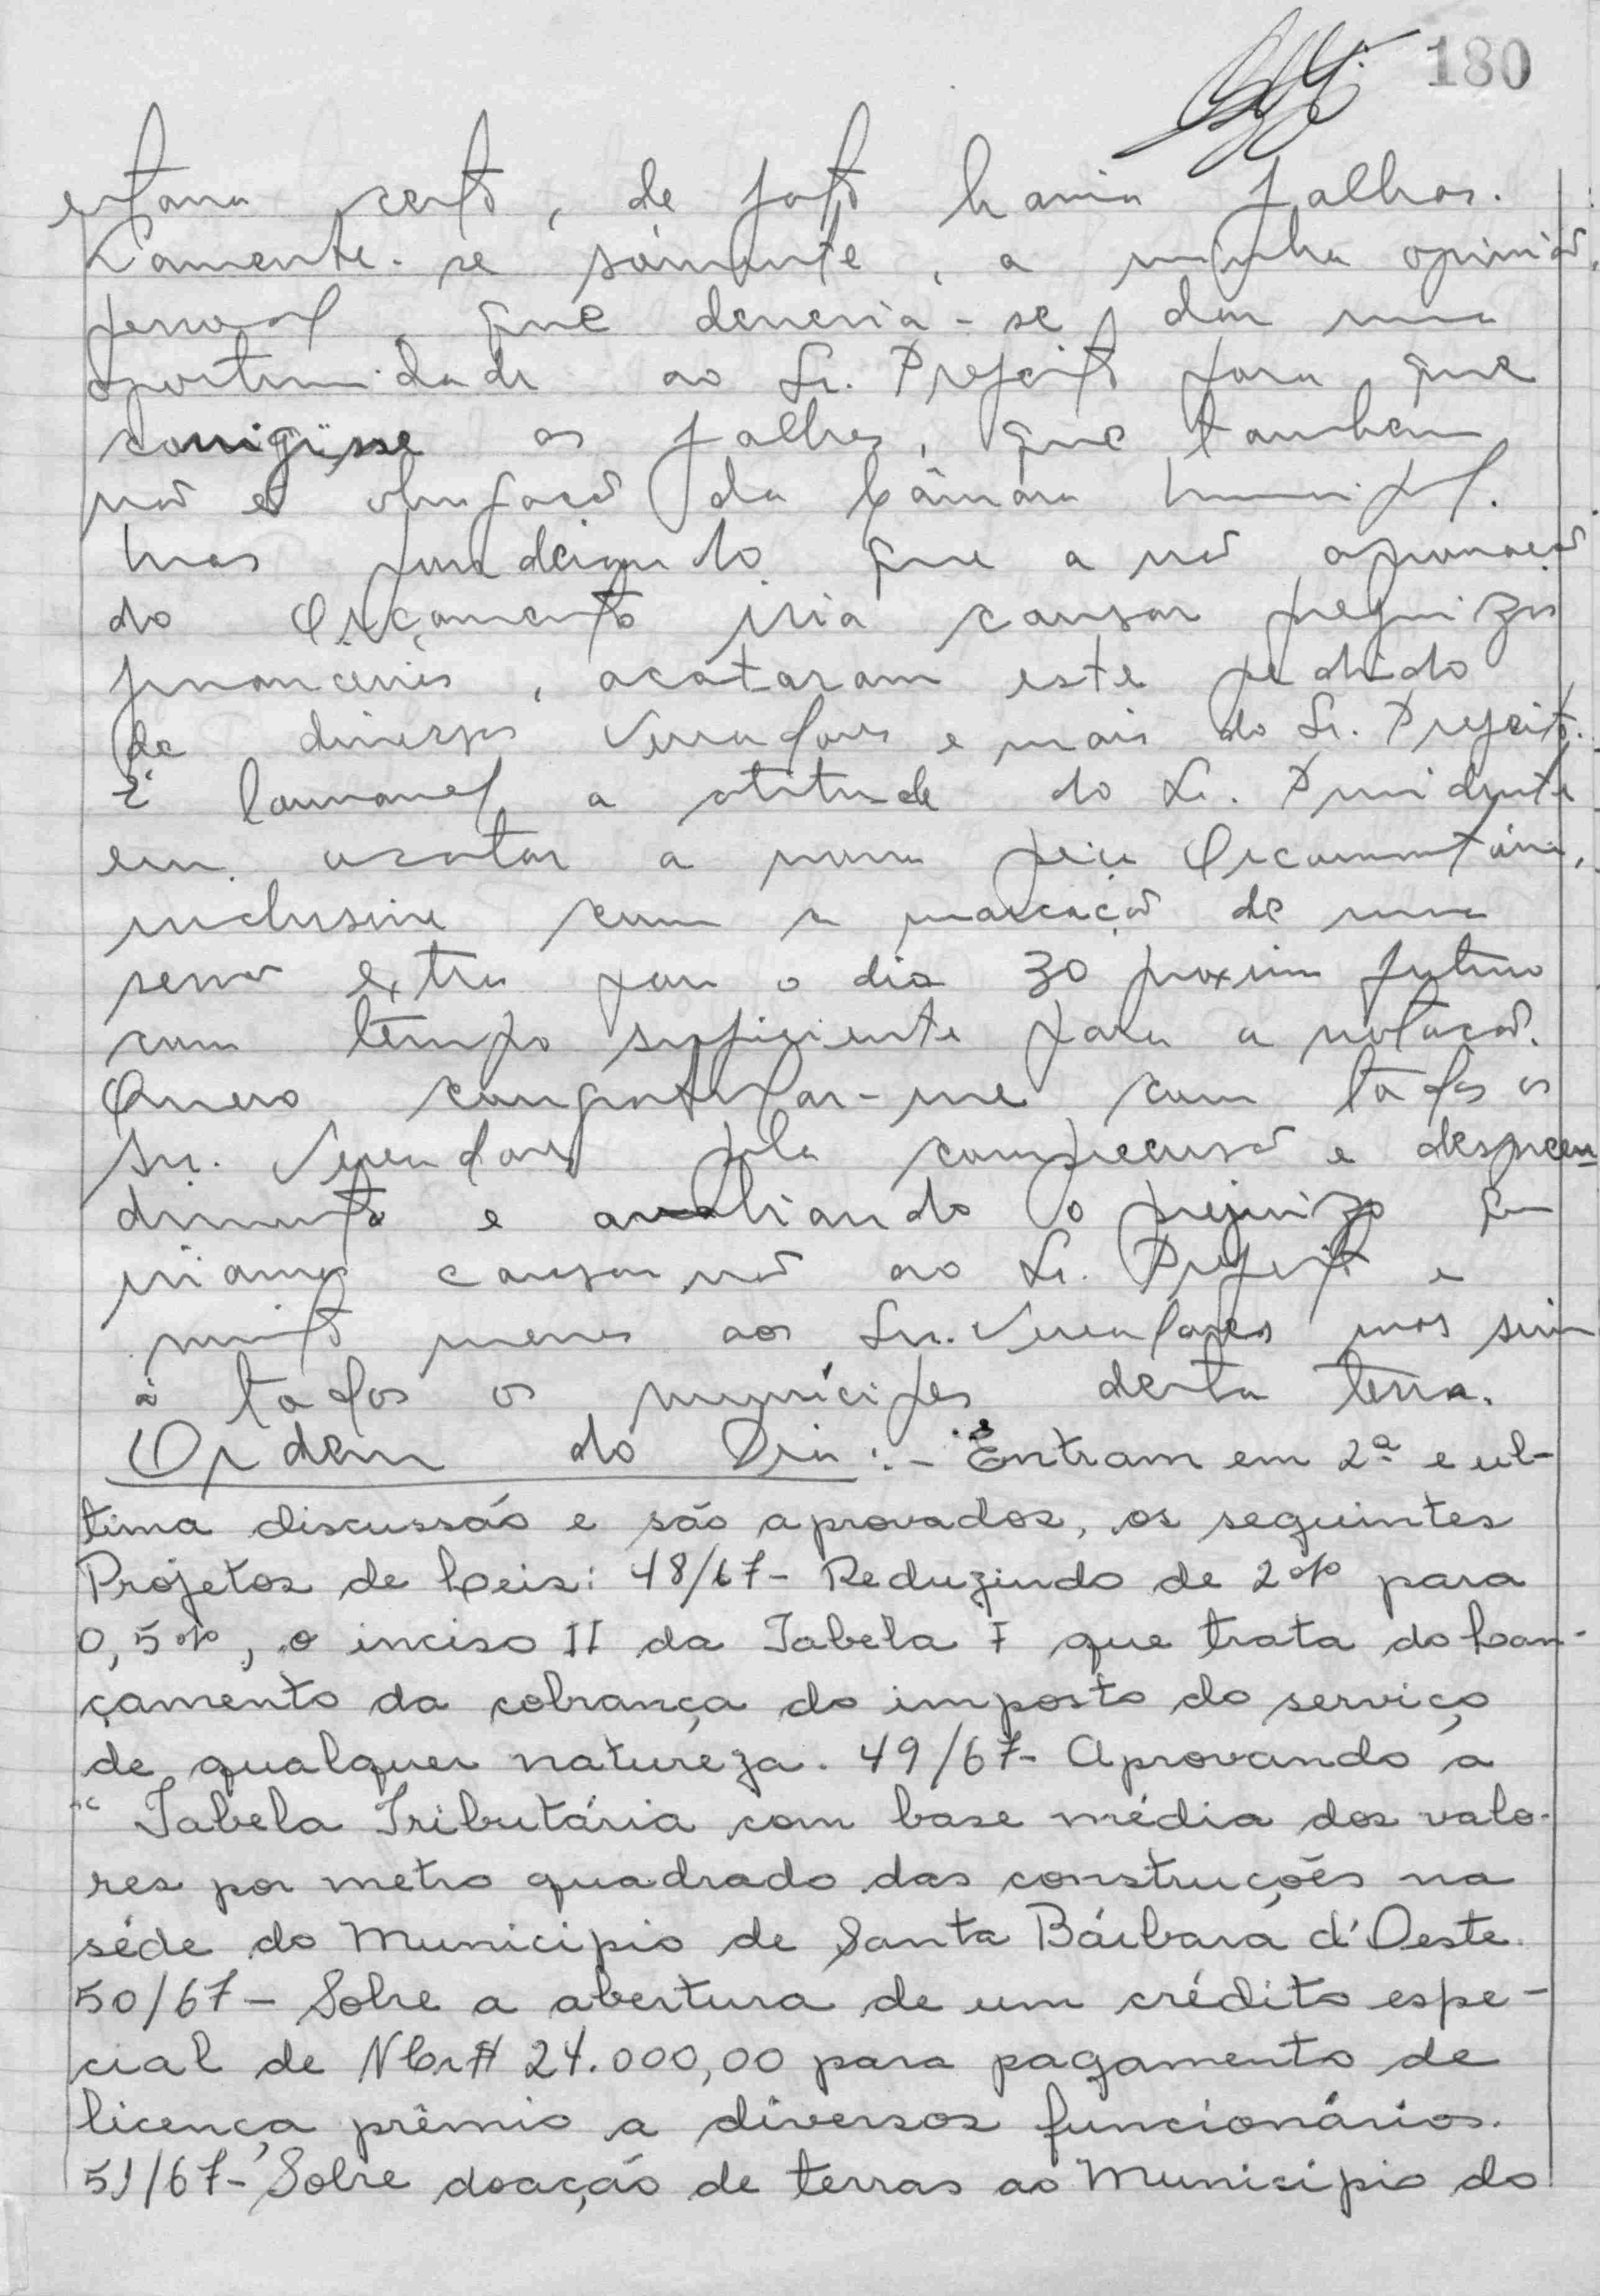 180
estava certo, de fato havia falhas.
Lamente-se sómente, a minha opinião,
pessoal, que deveria-se dar uma
oportunidade ao Sr. Prefeito para que
corrigisse as falhas, que tambem
não é obrigação da Câmara Municipal.
Mas ponderando que a não aprovação
do Orçamento iria causar prejuizos
financeiros, acataram este pedido
de diversos Vereadores e mais do Sr. Prefeito.
É louvavel a atitude do Sr. Presidente
em acatar a nova peça Orcamentária,
inclusive com a marcação de uma
sessão extra para o dia 30 proximo futuro
com tempo suficiente para a votação.
Quero congratular-me com todos os
Srs. Vereadores pela compreensão e despren
dimento e avaliando o prejuizo que
iriamos causar não ao Sr. Prefeito e
muito menos aos Srs. Vereadores mas sim
à todos os munícipes desta terra.
Ordem do Dia:- Entram em 2ª e ul-
tima discussão e são aprovados, os seguintes
Projetos de Leis: 48/67- Reduzindo de 2% para
0,5%, o inciso II da Tabela I que trata do Lan-
çamento da cobrança do imposto do serviço
de qualquer natureza. 49/67- Aprovando a
" Tabela Tributária com base média dos valo-
res por metro quadrado das construções na
séde do Municipio de Santa Bárbara d'Oeste.
50/67- Sobre a abertura de um crédito espe-
cial de NCr$ 24.000,00 para pagamento de
licença prêmio a diversos funcionários.
51/67- Sobre doação de terras ao Municipio do